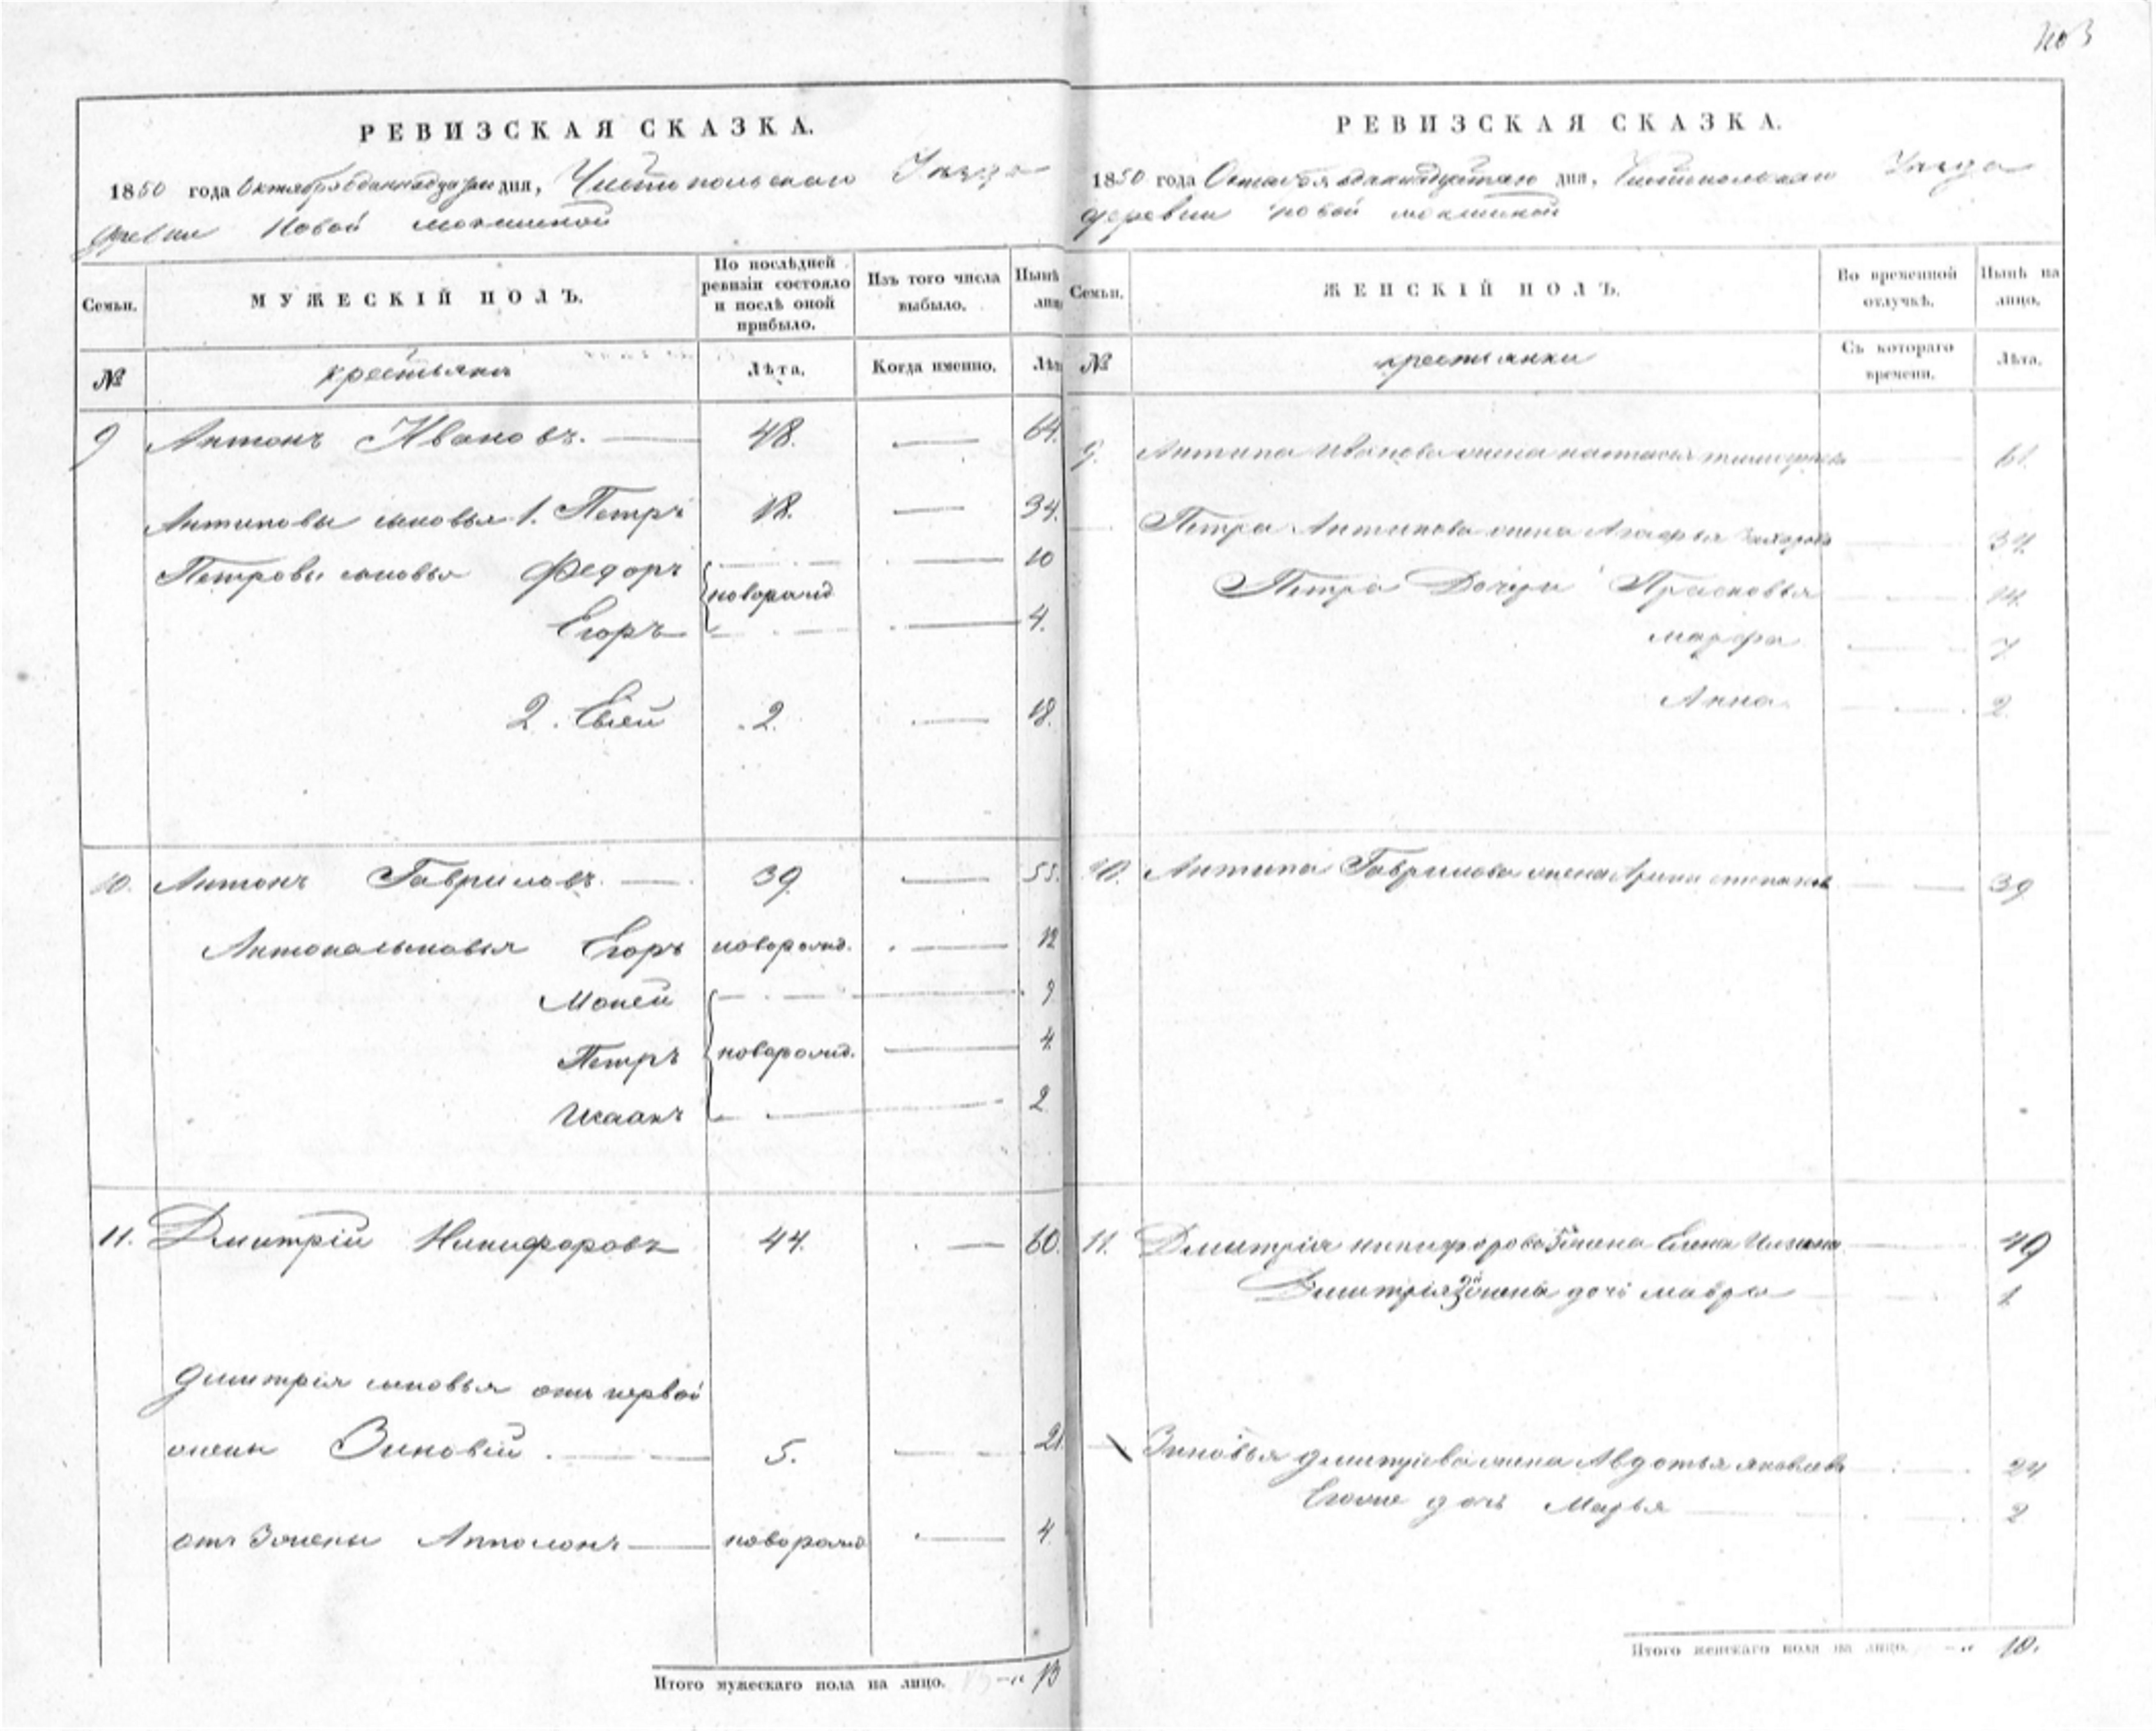 РЕВИЗСКАЯ СКАЗКА.
1850 года Октября одиннадцатаго дня, Чистопольскаго Уѣзда
деревни Новой мокшиной
Семьи. МУЖЕСКІЙ ПОЛЪ. По послѣдней ревизіи состояло и послѣ оной прибыло. Изъ того числа выбыло. Нынѣ лицо
№ крестьяни Лѣта. Когда именно. Лѣта
9 Антонъ Ивановъ. 48. 64.
Антиповы сыновья 1. Петръ 18. 34.
Петровы сыновья Федоръ 10
новорожд
Егоръ 4.
2. Евсей 2. 18.
10. Антонъ Гавриловъ 39. 55.
Антона сыновья Егоръ новорожд. 12
Мокей 9
Петръ новорожд. 4.
Исаакъ 2
11. Дмитрій Никифоровъ 44. 60.
Дмитрія сыновья отъ первой
жены Зиновій 5. 21.
отъ 3 жены Апполонъ новорожд 4
Итого мужескаго пола на лицо. 13
РЕВИЗСКАЯ СКАЗКА.
1850 года Октября одиннадцатаго дня, Чистопольскаго Уѣзда
деревни новой мокшиной
Семьи. ЖЕНСКІЙ ПОЛЪ. Во временной отлучкѣ. Нынѣ на лицо.
№ крестьянки Съ котораго времени. Лѣта.
9. Антипа Иванова жена настасья 61.
Петра Антипова жена Агафья Захарова 34.
Петра Дочери Прасковья 14.
марфа 7
Анна 2.
10. Антипа Гаврилова жена Арина степанова 39
11. Дмитрія никифорова жена Елена Ильина 49
Дмитрія жена дочь мавра 1
Зиновья дмитріева жена Авдотья яковлева 24
Егоже дочь Марья 2
Итого женскаго пола на лицо. 10.